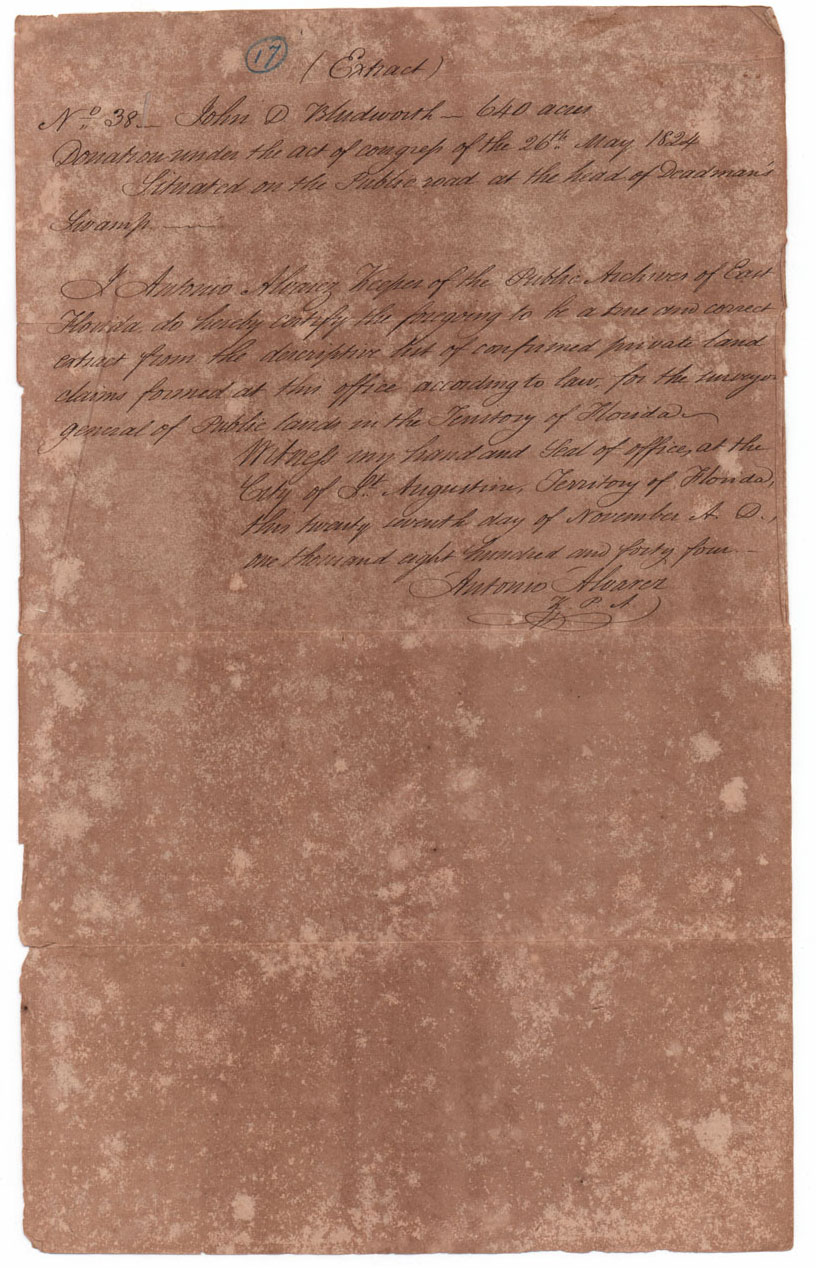 17
(Extract)
No. 38 — John D Bludworth — 640 acres
Donation under the act of congress of the 26th. May 1824
Situated on the Public road at the head of Deadman's
Swamp. —
I Antonio Alvarez Keeper of the Public Archives of East
Florida do hereby certify the foregoing to be a true and correct
extract from the descriptive list of confirmed private land
claims formed at this office according to law, for the surveyor
general of Public lands in the Territory of Florida.
Witness my hand and Seal of office, at the
City of St. Augustine, Territory of Florida,
this twenty seventh day of November A. D.,
one thousand eight hundred and forty four —
Antonio Alvarez
K P A